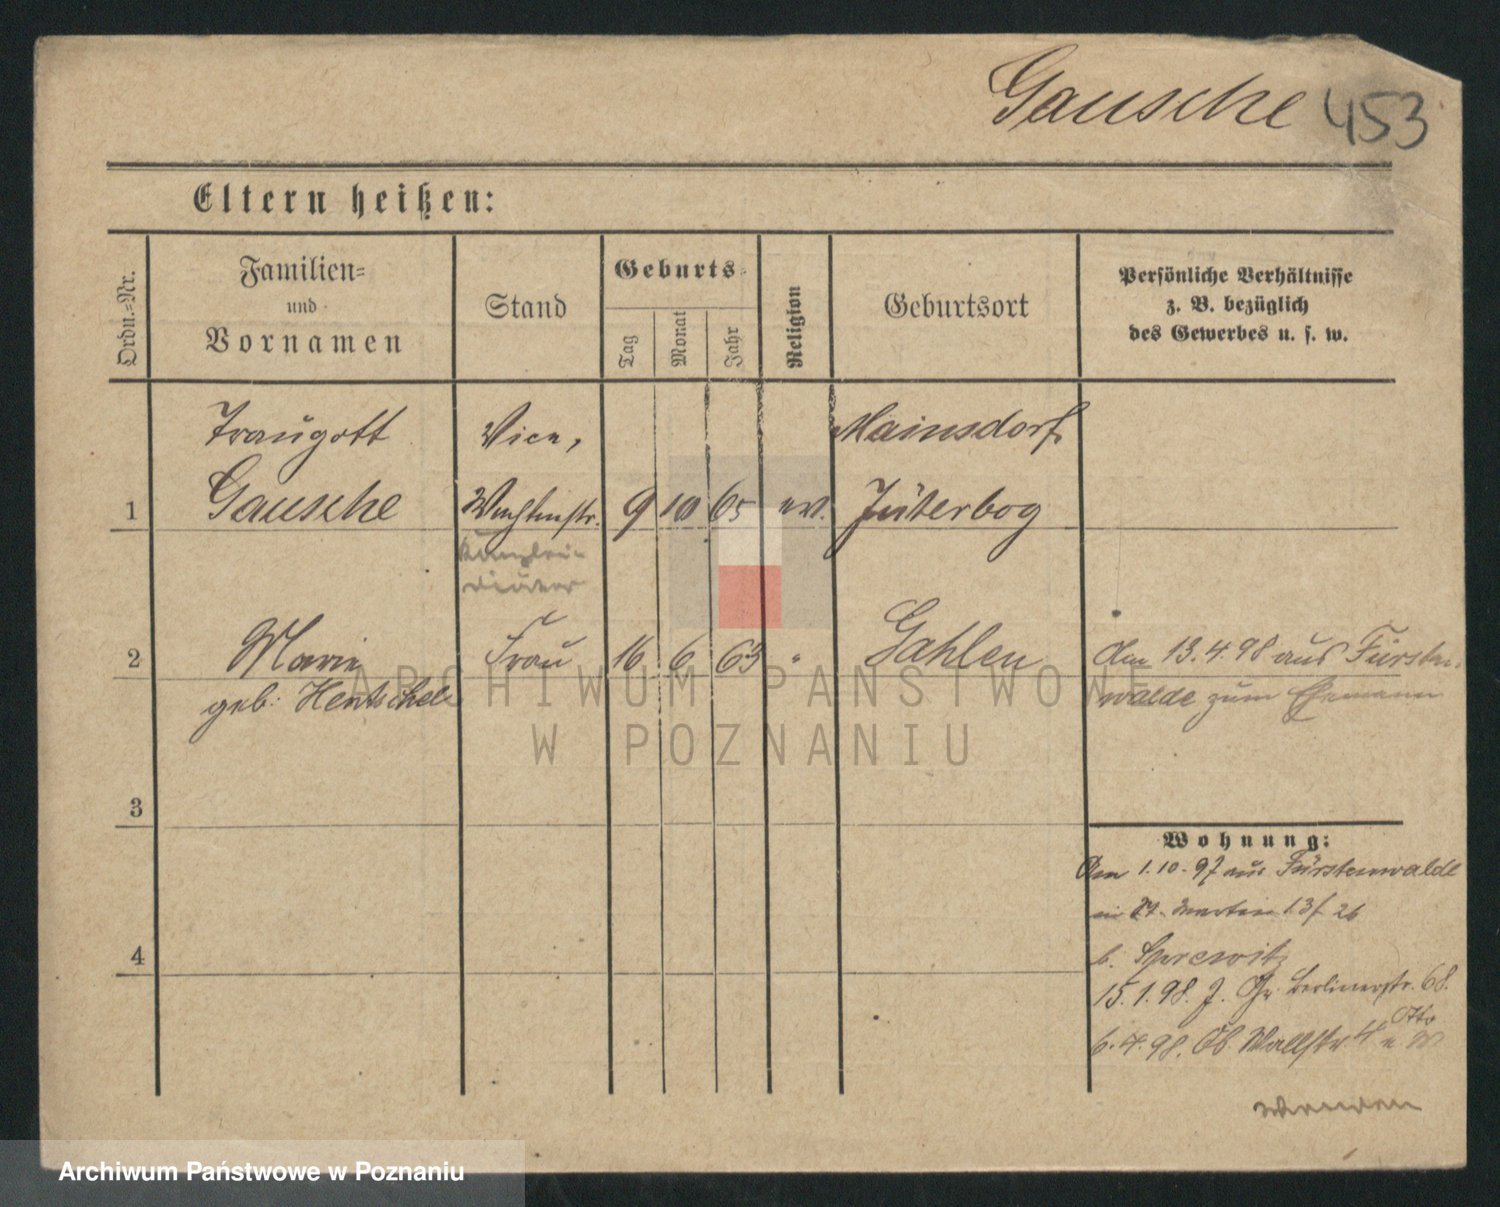 Gausche 453
Eltern heißen:
Ordn.-Nr.
Familien-
und
Vornamen
Stand
Geburts-
Tag
Monat
Jahr
Religion
Geburtsort
Persönliche Verhältnisse
z. B. bezüglich
des Gewerbes u. s. w.
Traugott Vice, Mainsdorf
1 Gausche 9 10 65 ev. Jüterbog
Kanzlei-
diener
2 Marie Frau 16 6 63 " Gahlen Am 13.4.98 aus Fürsten-
geb: Hentschel walde zum Ehemann
ARCHIWUM PAŃSTWOWE
W POZNANIU
3
Wohnung:
Am 1.10.97 aus Fürstenwalde
in St. Martin 13/ 26
4
b. Sprewitz
15.1.98. J. Gr. Berlinerstr. 68.
6.4.98. Ob. Wallstr. 4
wenden
Archiwum Państwowe w Poznaniu